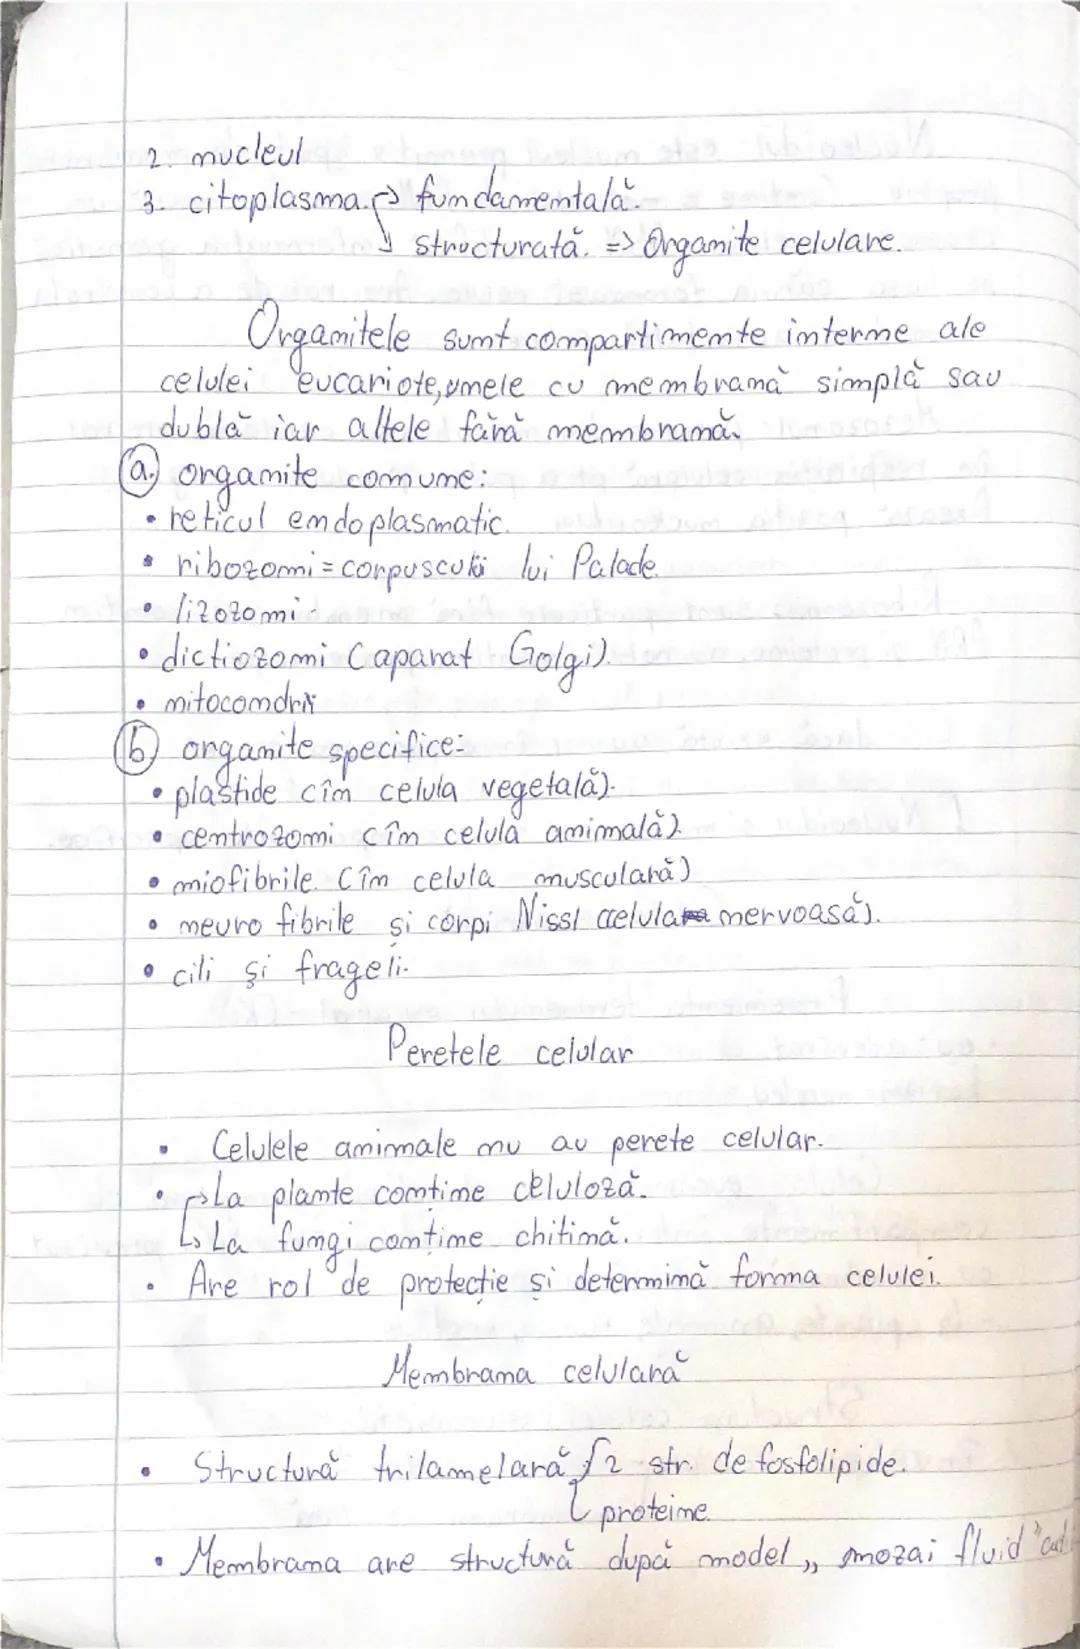 2. nucleul
3. citoplasma. → fundamentală.
↓ structurată. => Organite celulare.
Organitele sunt compartimente interne ale
celulei eucariote, unele cu membrană simplă sau
dublă iar altele fără membrană.
a. organite comune:
• reticul endoplasmatic.
• ribozomi = corpusculii lui Palade.
• lizozomi.
• dictiozomi (aparat Golgi).
• mitocondrii
b) organite specifice:
• plastide (în celula vegetală).
• centrozomi (în celula animală).
• miofibrile. (în celula musculară)
• neuro fibrile și corpi Nissl (celula nervoasă).
• cili și frageli.
Peretele celular
• Celulele animale nu au perete celular.
• → La plante conține celuloză.
↳ La fungi conține chitină.
• Are rol de protecție și determină forma celulei.
Membrana celulară
• Structură trilamelară { 2 str. de fosfolipide.
proteine.
• Membrana are structură după model „mozai fluid"